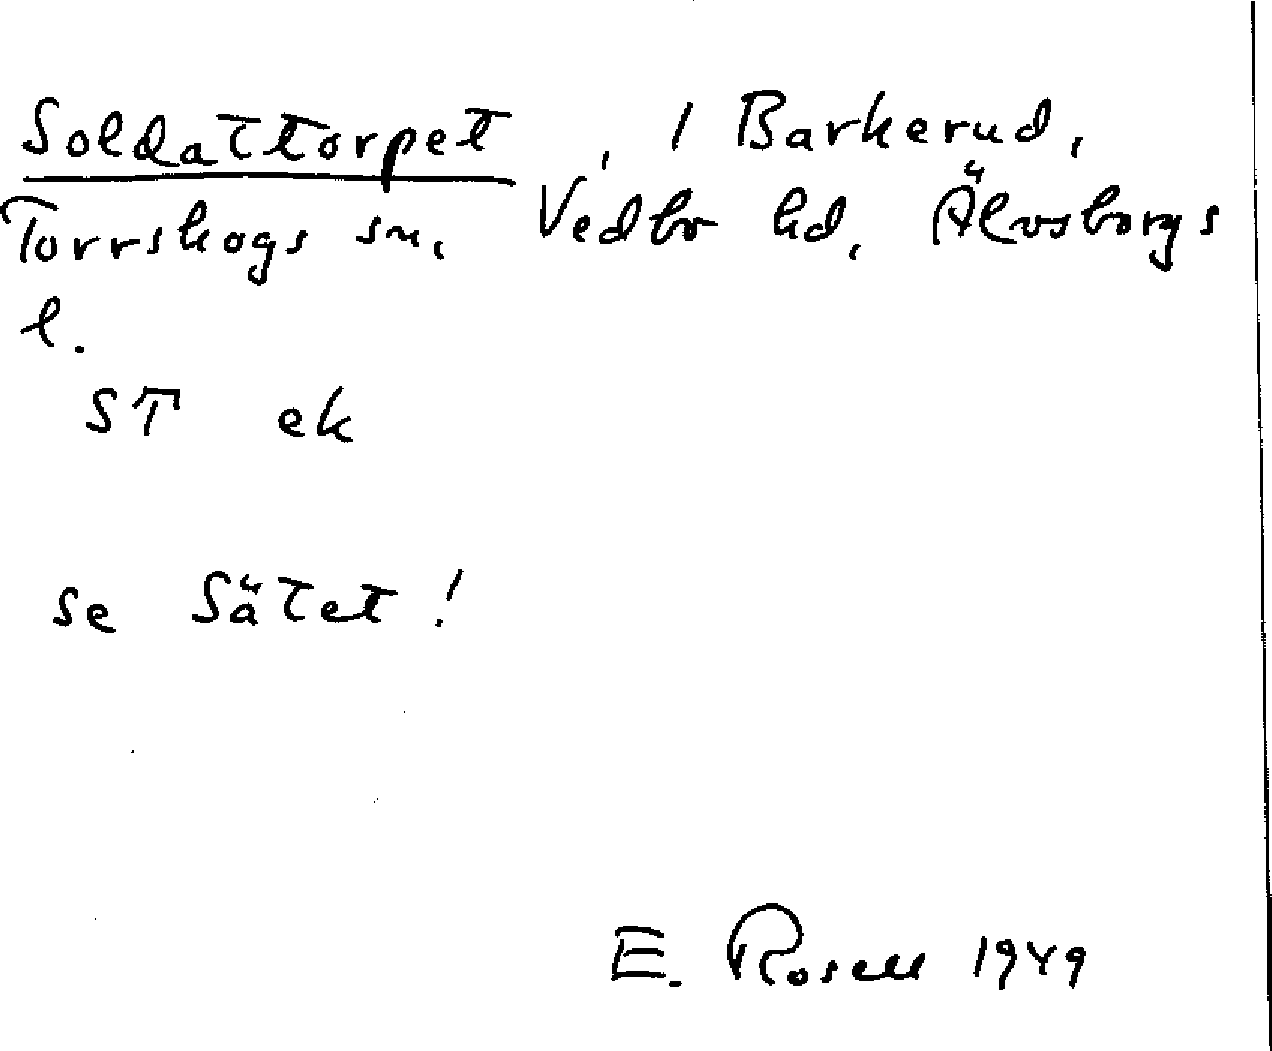 Soldattorpet, 1 Barkerud,
Torrskogs sn. Vedbo hd. Älvsborgs
l.
ST ek
se Sätet!
E. Rosell 1949